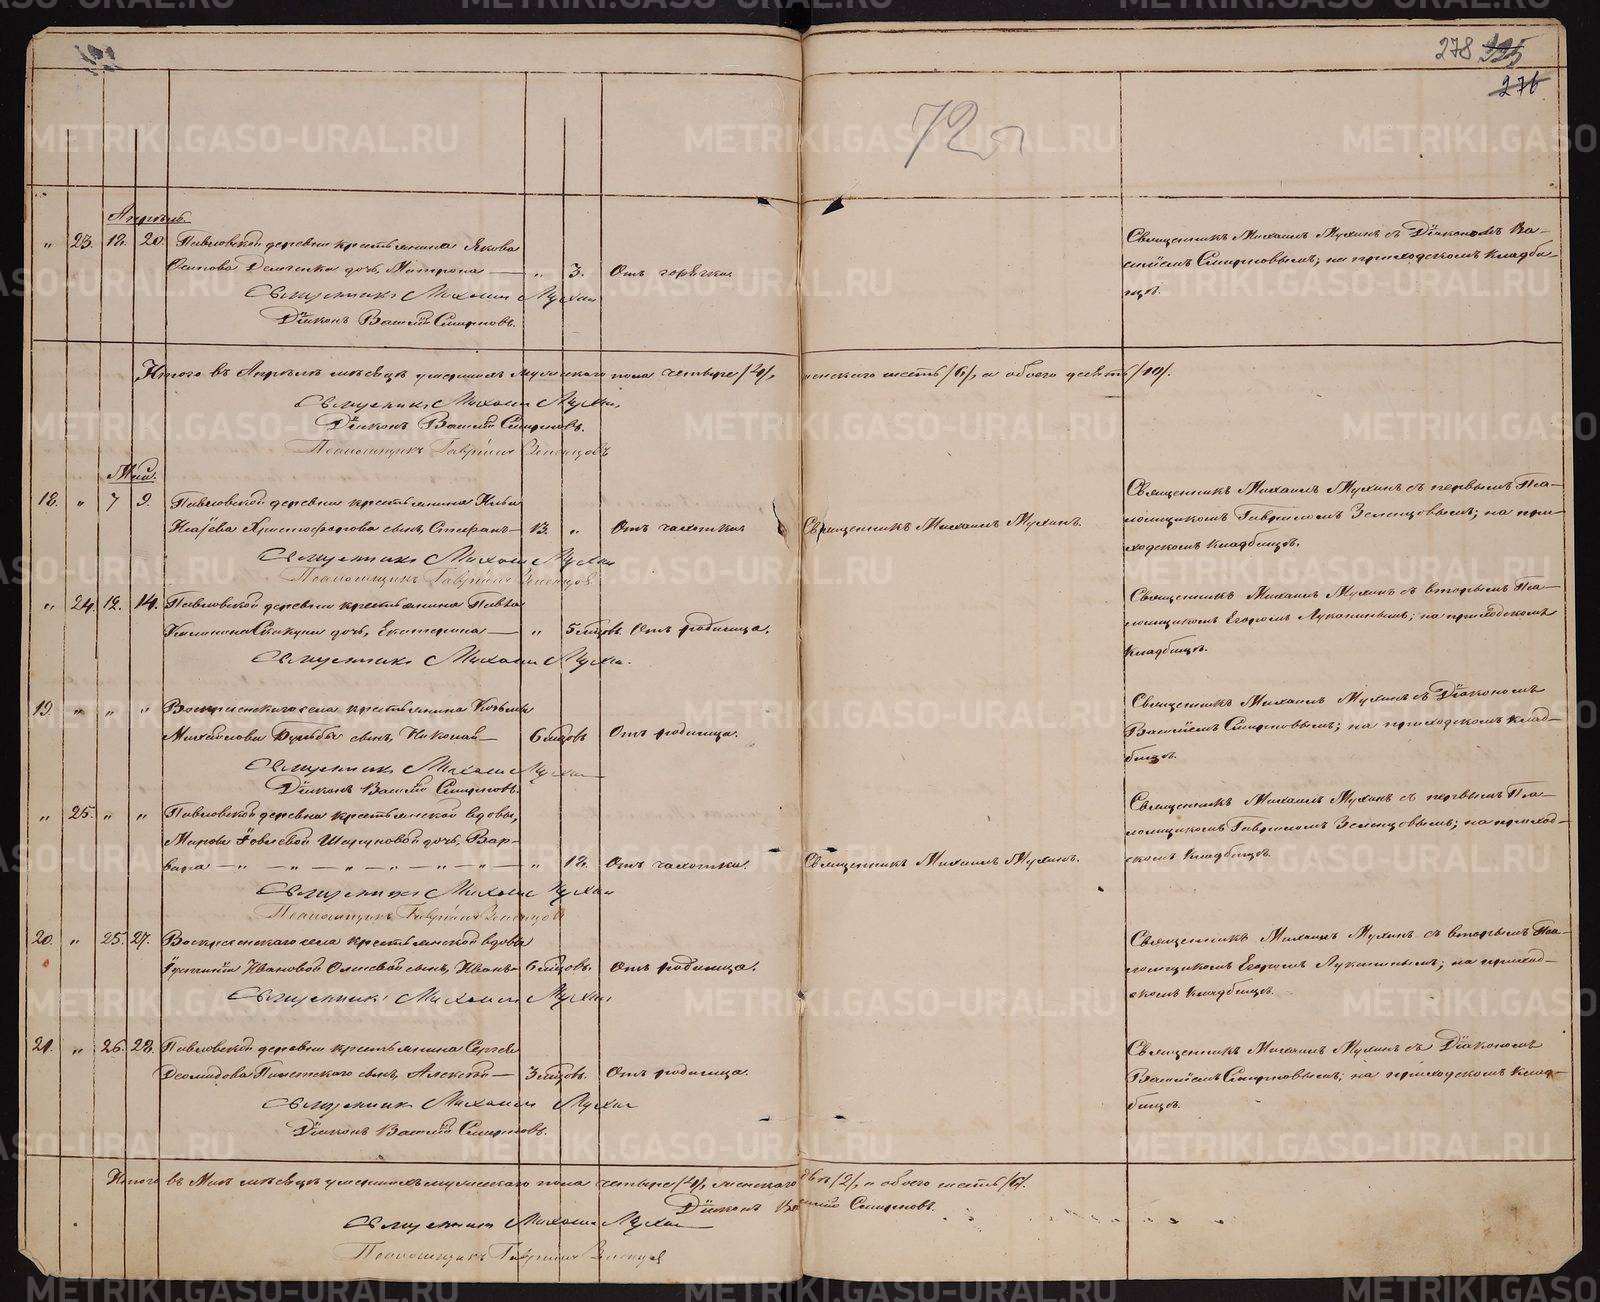 278 325
276
72
Апрѣль.
„ 23. 18. 20. Павловской деревни крестьянина Якова
Осипова дочь, Матрона — „ 3. Отъ горячки
Священникъ Михаилъ Мухинъ
Діаконъ Василій Смирновъ.
Священникъ Михаилъ Мухинъ съ Діакономъ Ва-
силіемъ Смирновымъ; на приходскомъ кладби-
щѣ.
Итого въ Апрѣлѣ мѣсяцѣ умершихъ мужескаго пола четыре /4/, женскаго шесть /6/, а обоего десять /10/.
Священникъ Михаилъ Мухинъ
Діаконъ Василій Смирновъ.
Псаломщикъ Гавріилъ Зеленцовъ
Май.
18. „ 7 9. Павловской деревни крестьянина Ильи
Христофорова сынъ, Стефанъ — 13. „ Отъ чахотки Священникъ Михаилъ Мухинъ.
Священникъ Михаилъ Мухинъ
Псаломщикъ Гавріилъ Зеленцовъ
Священникъ Михаилъ Мухинъ съ первымъ Пса-
ломщикомъ Гавріиломъ Зеленцовымъ; на при-
ходскомъ кладбищѣ.
„ 24. 12. 14. Павловской деревни крестьянина Павла
дочь, Екатерина — „ 5 мѣсцовъ. Отъ родимца.
Священникъ Михаилъ Мухинъ.
Священникъ Михаилъ Мухинъ съ вторымъ Пса-
ломщикомъ Егоромъ Лукинымъ; на приходскомъ
кладбищѣ.
19. „ „ „ Воскресенскаго села крестьянина Козьмы
Михайлова сынъ, Николай — 6 мѣсцовъ Отъ родимца.
Священникъ Михаилъ Мухинъ
Діаконъ Василій Смирновъ.
Священникъ Михаилъ Мухинъ съ Діакономъ
Василіемъ Смирновымъ; на приходскомъ клад-
бищѣ.
„ 25. „ „ Павловской деревни крестьянской вдовы,
Марѳы дочь, Вар-
вара — „ — „ — „ — „ — „ — „ — „ 18. Отъ чахотки. Священникъ Михаилъ Мухинъ.
Священникъ Михаилъ Мухинъ
Псаломщикъ Гавріилъ Зеленцовъ
Священникъ Михаилъ Мухинъ съ первымъ Пса-
ломщикомъ Гавріиломъ Зеленцовымъ; на приход-
скомъ кладбищѣ.
20. „ 25. 27. Воскресенскаго села крестьянской вдовы
Ивановой сынъ, Иванъ — 6 мѣсцовъ. Отъ родимца.
Священникъ Михаилъ Мухинъ
Священникъ Михаилъ Мухинъ съ вторымъ Пса-
ломщикомъ Егоромъ Лукинымъ; на приход-
скомъ кладбищѣ.
21. „ 26. 28. Павловской деревни крестьянина Сергѣя
Деомидова сынъ, Алексѣй — 3 мѣсцовъ. Отъ родимца.
Священникъ Михаилъ Мухинъ
Діаконъ Василій Смирновъ.
Священникъ Михаилъ Мухинъ съ Діакономъ
Василіемъ Смирновымъ; на приходскомъ клад-
бищѣ.
Итого въ Маѣ мѣсяцѣ умершихъ мужескаго пола четыре /4/, женскаго два /2/, а обоего шесть /6/.
Діаконъ Василій Смирновъ.
Священникъ Михаилъ Мухинъ
Псаломщикъ Гавріилъ Зеленцовъ
METRIKI.GASO-URAL.RU